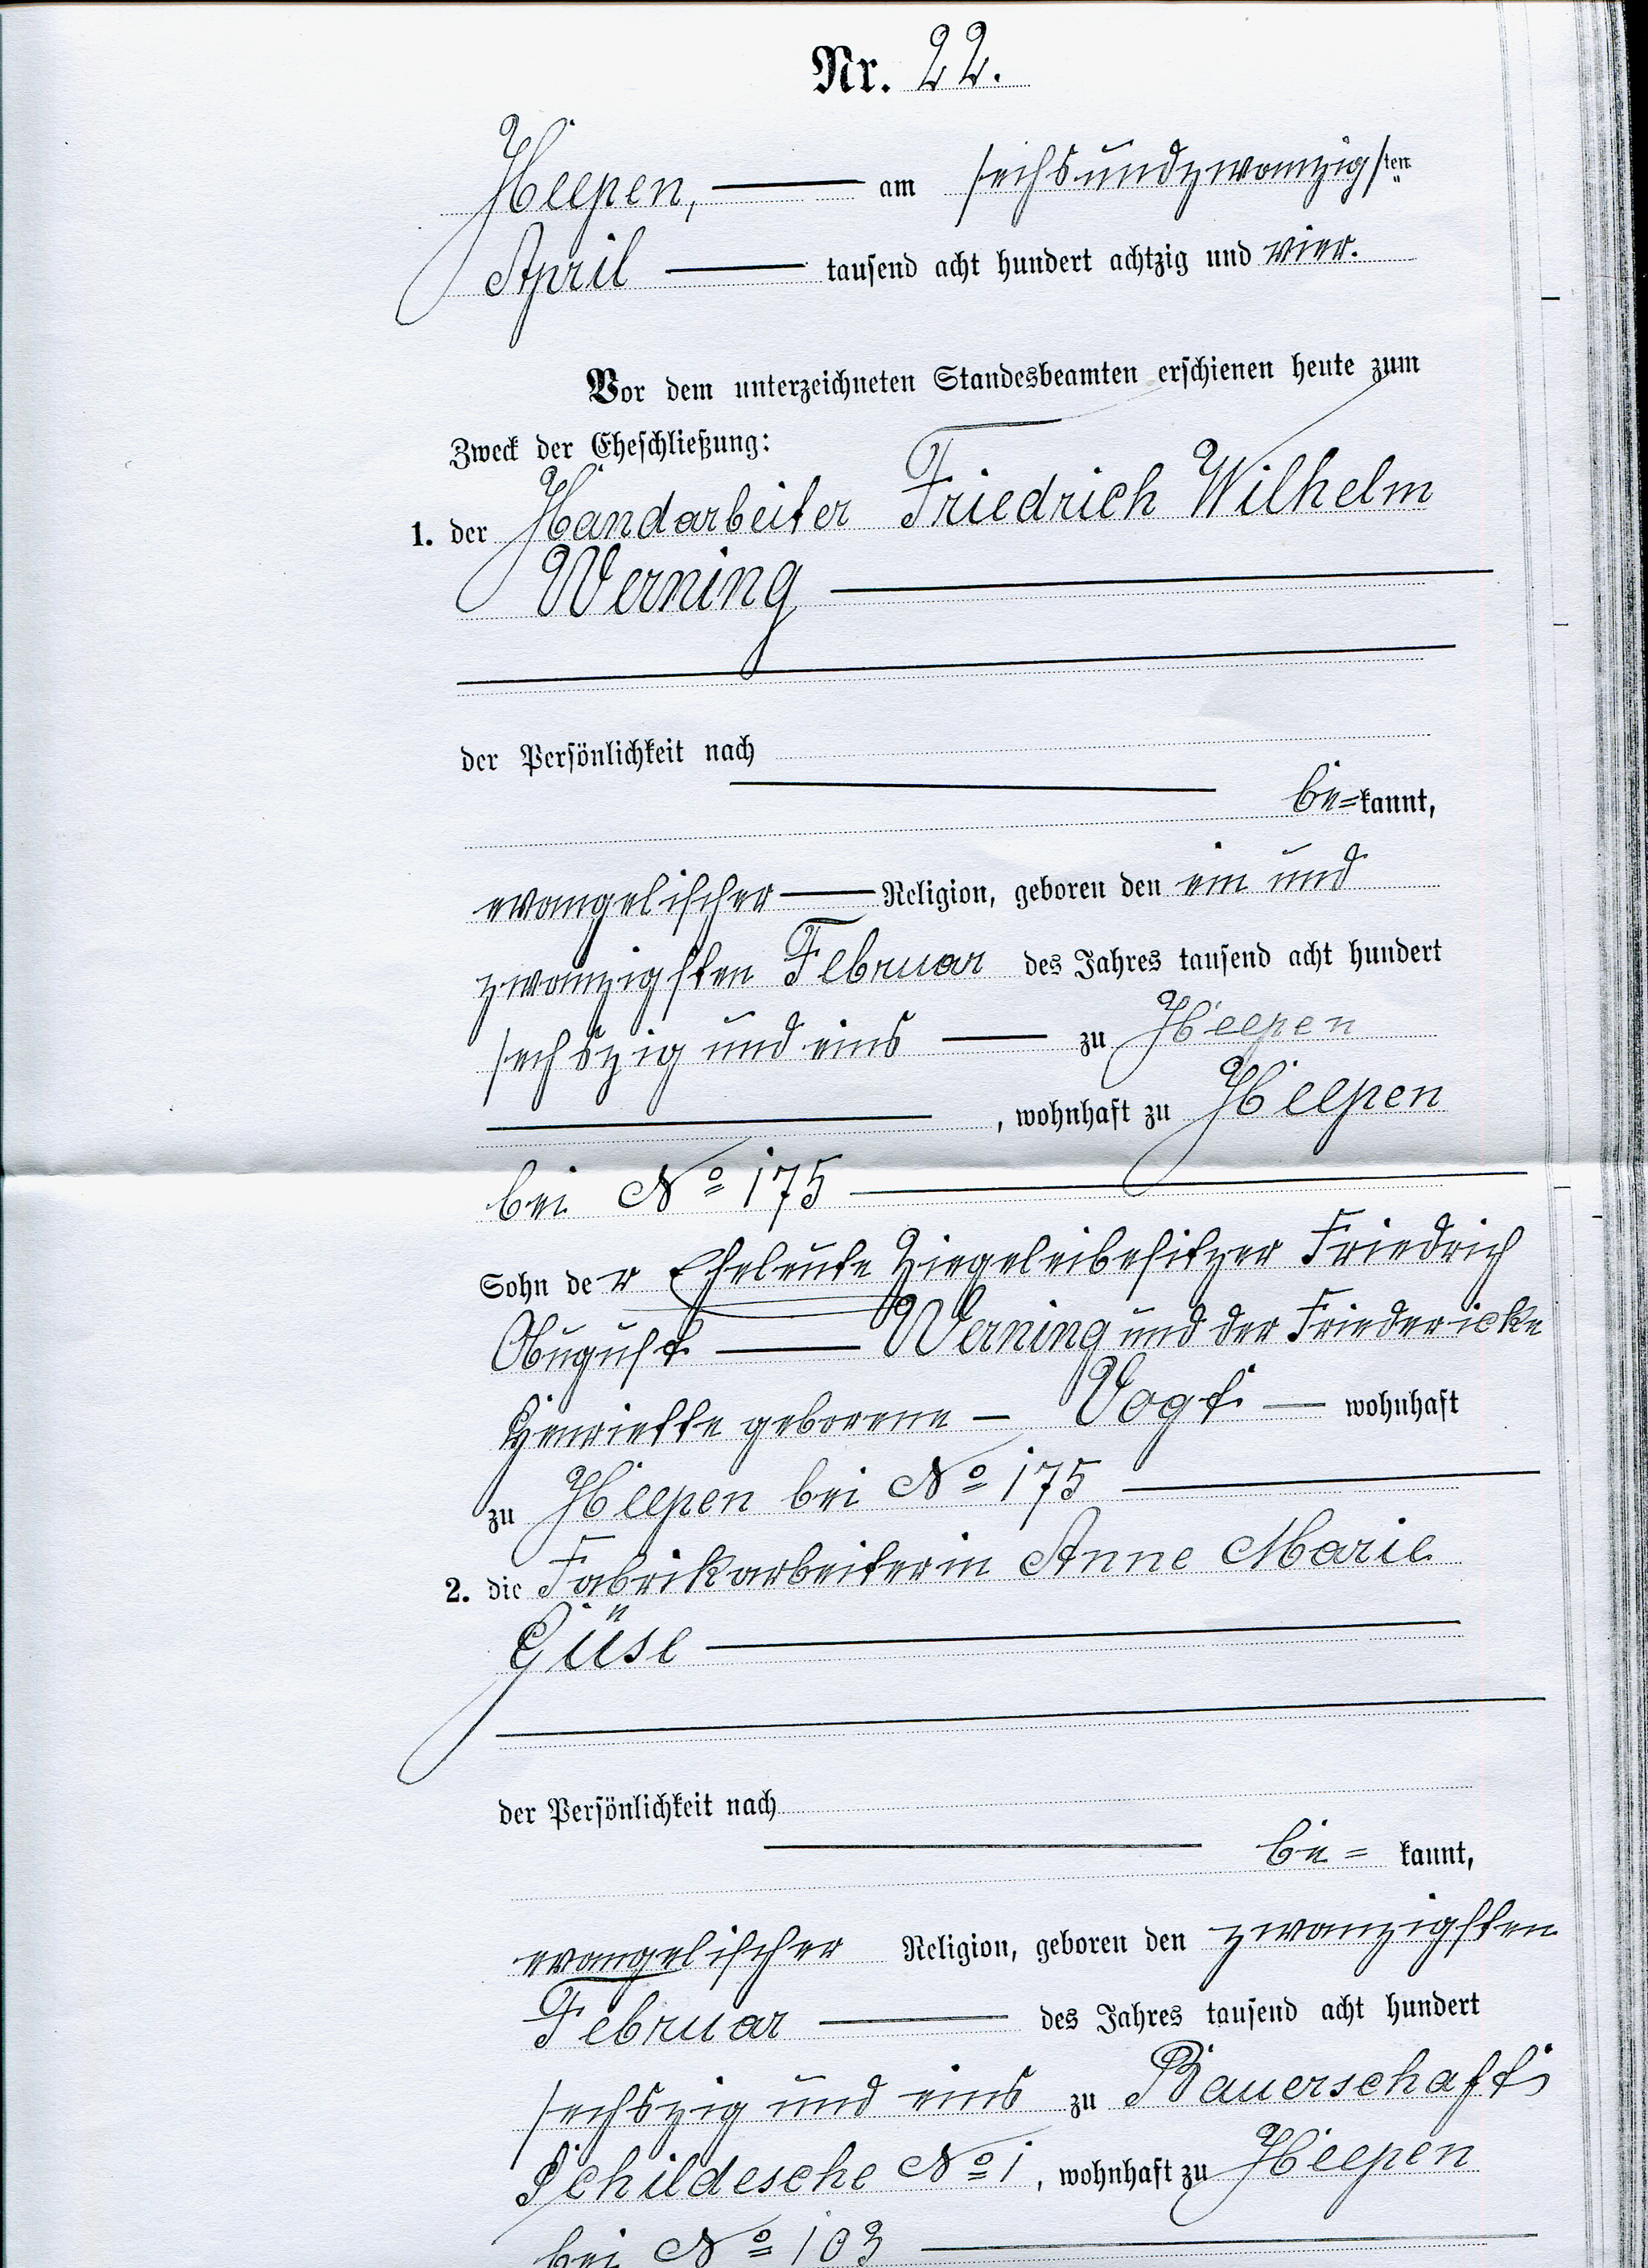 Nr. 22.
Heepen, am sechsundzwanzigsten
April tausend acht hundert achtzig und vier.
Vor dem unterzeichneten Standesbeamten erschienen heute zum
Zweck der Eheschließung:
1. der Handarbeiter Friedrich Wilhelm
Werning
der Persönlichkeit nach
be=kannt,
evangelischer Religion, geboren den ein und
zwanzigsten Februar des Jahres tausend acht hundert
sechszig und eins zu Heepen
, wohnhaft zu Heepen
bei No 175
Sohn der Eheleute Ziegeleibesitzer Friedrich
August Werning und der Friedericke
Henriette geborene - Vogt - wohnhaft
zu Heepen bei No 175
2. die Fabrikarbeiterin Anne Marie
Güse
der Persönlichkeit nach
be= kannt,
evangelischer Religion, geboren den zwanzigsten
Februar des Jahres tausend acht hundert
sechszig und eins zu Bauerschaft
Schildesche No 1, wohnhaft zu Heepen
bei No 103